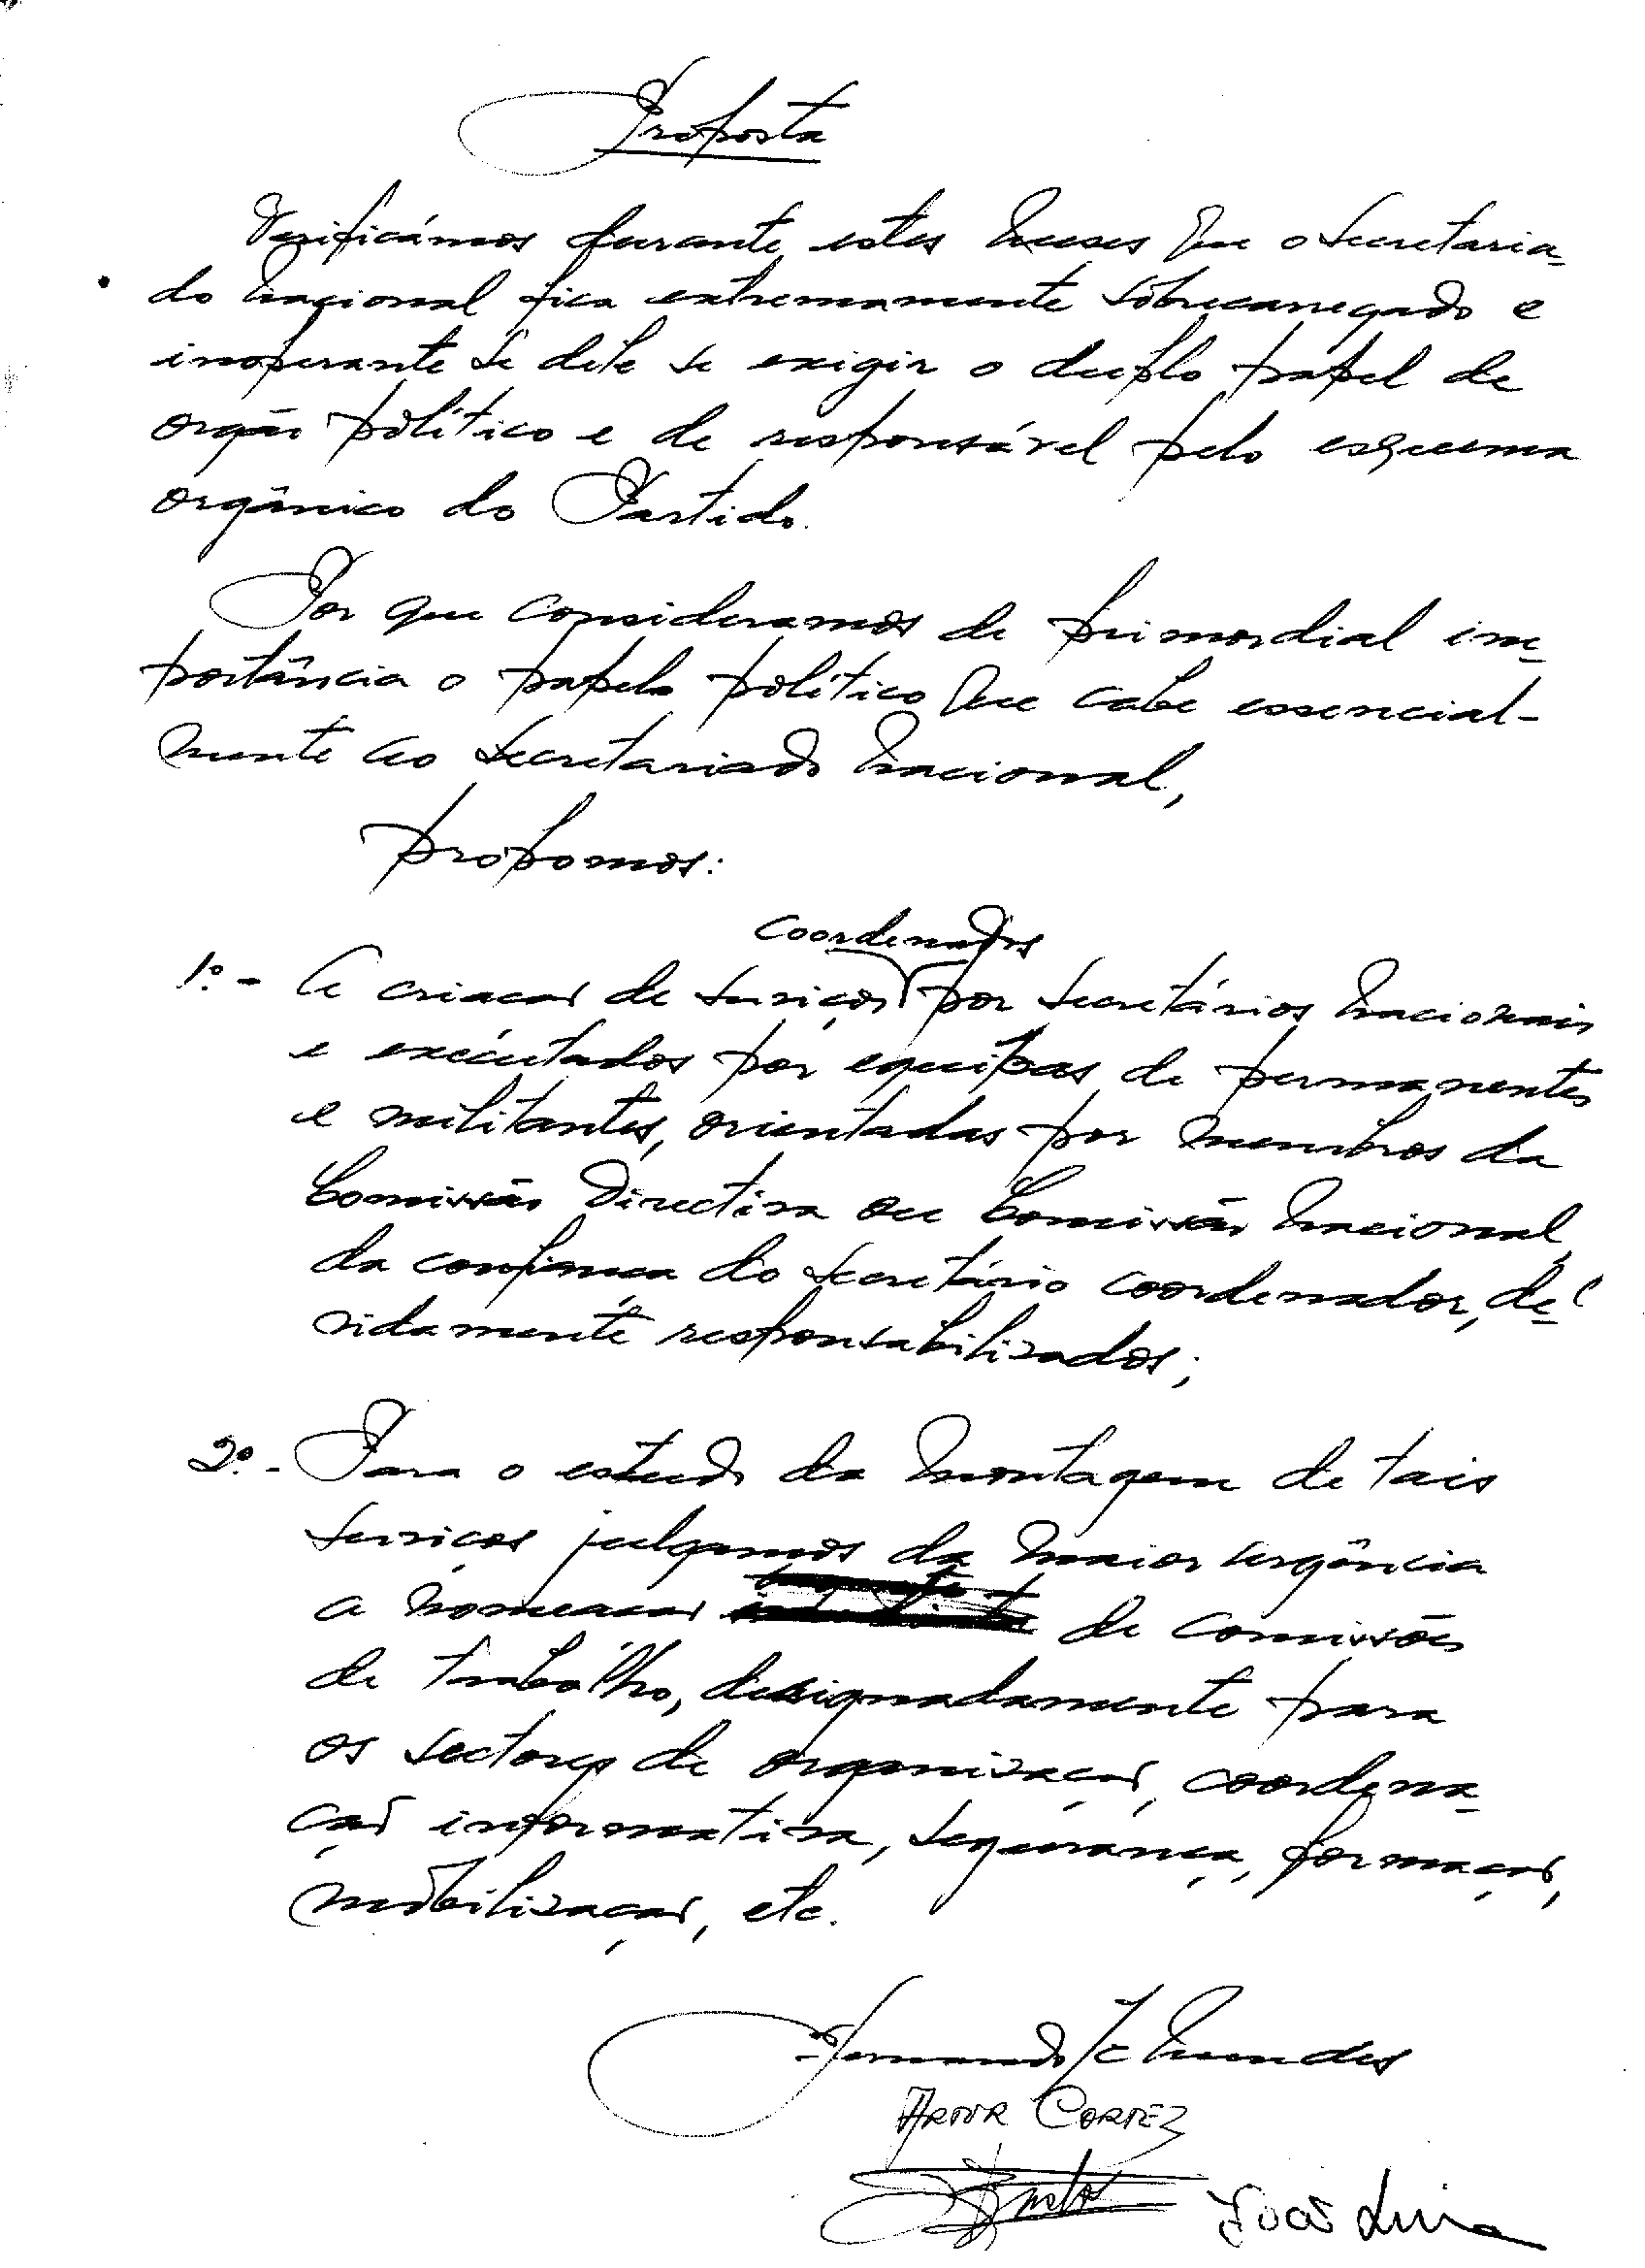 Proposta
Verificámos durante estes meses que o Secretaria-
do Nacional fica extremamente sobrecarregado e
inoperante se dele se exigir o duplo papel de
orgão político e de responsável pelo esquema
orgânico do Partido.
Por que consideramos de primordial im-
portância o papel político que cabe essencial-
mente ao Secretariado Nacional,
propomos:
coordenados
1º - A criação de serviços por Secretários Nacionais
e executados por equipas de permanentes
e militantes, orientadas por membros da
Comissão Directiva ou Comissão Nacional,
da confiança do Secretário coordenador, de-
vidamente responsabilizados;
2º - Para o estudo da montagem de tais
serviços julgamos da maior urgência
a nomeação de comissões
de trabalho, designadamente para
os sectores de organização, coordena-
ção informativa, segurança, formação,
mobilização, etc.
Fernando
ARTUR CORTEZ
João Lima